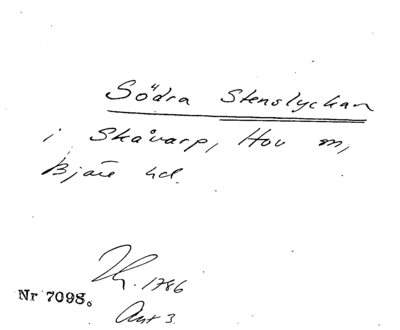 Södra Stenslyckan
i Skåvarp, Hov sn,
Bjäre hd.
1786
Nr 7098.
Akt 3.